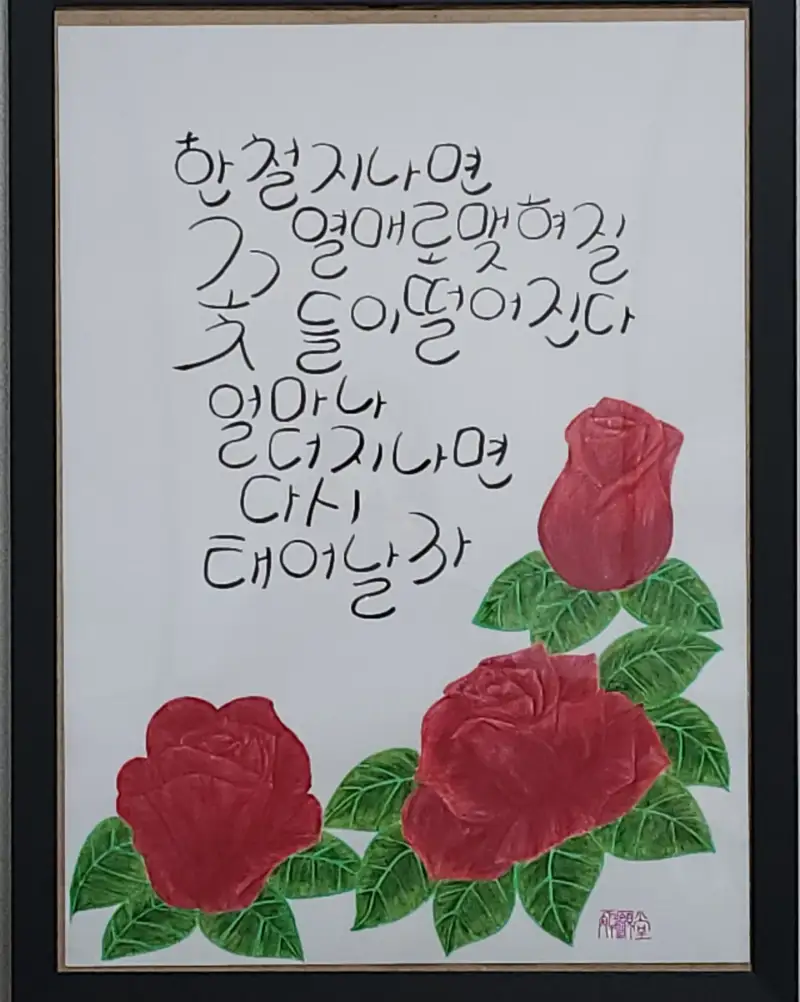 한 철 지나면
열매로 맺혀질
꽃들이 떨어진다
얼마나
더 지나면
다시
태어날까